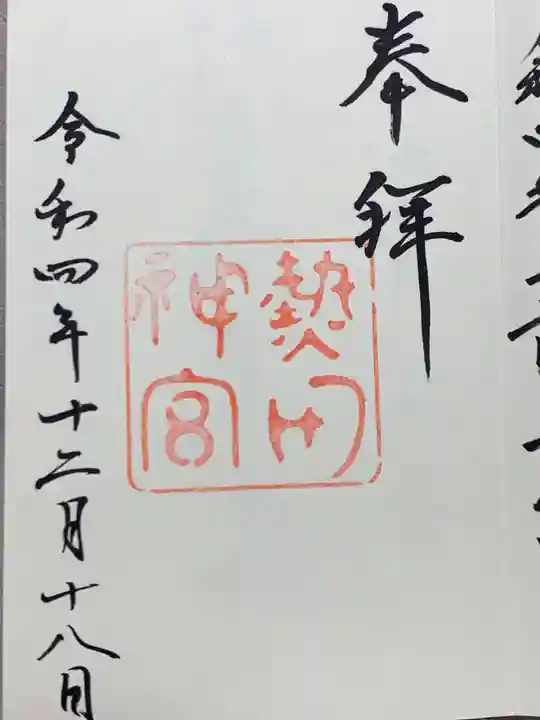 奉拜
熱田
神宮
令和四年十二月十八日